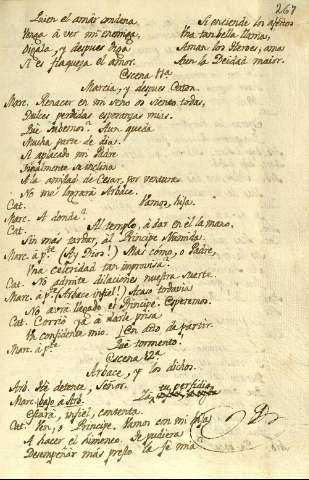 267
Quien el amor condena
Venga à ver mi enemiga,
Digala, y despues diga
Si es flaqueza el amor.
Si enciende los afectos
Una tan bella llama,
Aman los Heroes, ama
Aun la Deidad maior.
Escena 11ª
Marcia, y despues Caton.
Marc. Renacer en mi seno os siento todas,
Dulces perdidas esperanzas mias.
Què sabemos? Aun queda
Mucha parte de dia.
Si apiacado mi Padre
Finalmente se inclina
A la amistad de Cesar, por ventura
No me logrará Arbace.
Cat. Vamos, hija.
Marc. A donde?
Cat. Al templo, à dar en èl la mano,
Sin más tardar, al Principe Numida.
Marc. à pte. (Ay Dios!) Mas como, o Padre,
Una celeridad tan improvisa?
Cat. No admite dilaciones nuestra suerte.
Marc. à pte. (Arbace infiel!) Acaso todavia
No avrà llegado el Principe. Esperemos.
Cat. Corriò yà à darle prisa
Un confidente mio.
Marc. à pte. Què tormento!
Escena 12ª
Arbace, y los dichos.
Arb. detente, Señor.
Marc. bajo a Arb. tu perfidia
Estarà, infiel, contenta.
Cat. Ven, o Principe. Vamos con mi hija
A hacer el himeneo. Se pudiera
Desempeñar más presto la fe mia?